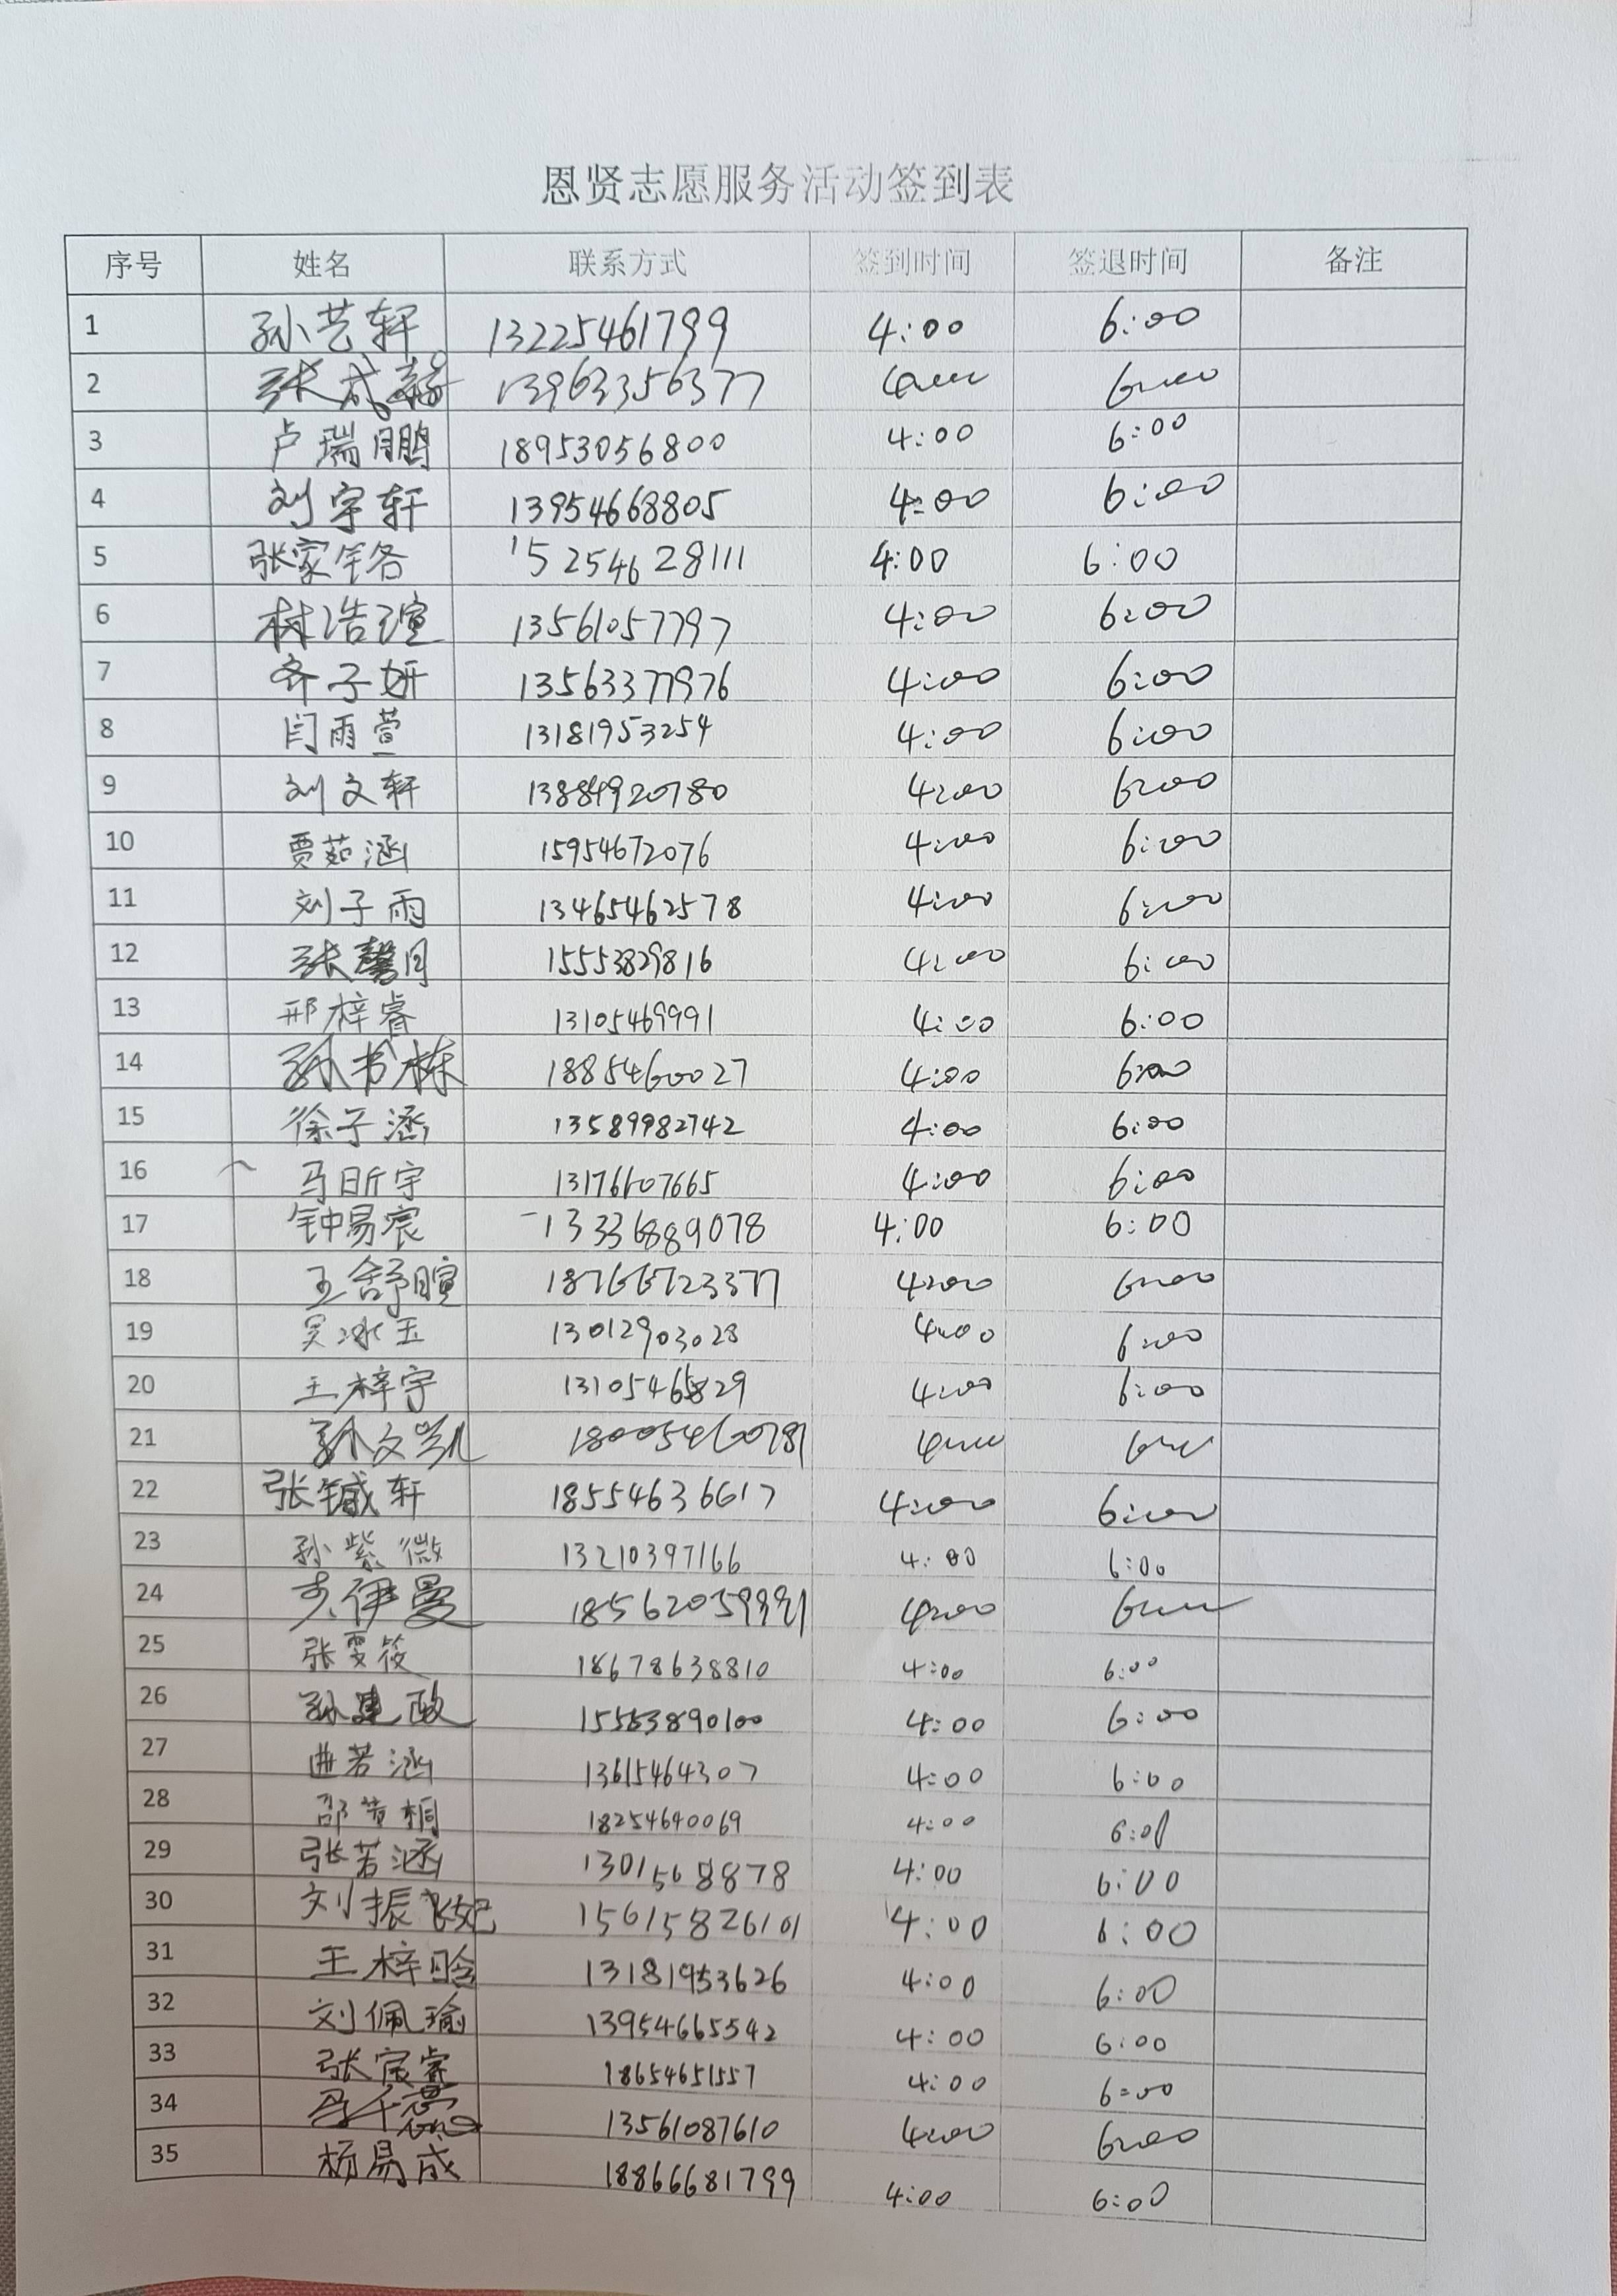 恩贤志愿服务活动签到表
序号 姓名 联系方式 签到时间 签退时间 备注
1 孙艺轩 13225461799 4:00 6:00
2 张成 13963356377 4:00 6:00
3 卢瑞鹏 18953056800 4:00 6:00
4 刘宇轩 13954668805 4:00 6:00
5 张家铭 15254628111 4:00 6:00
6 林浩瑄 13561057797 4:00 6:00
7 齐子妍 13563377976 4:00 6:00
8 闫雨萱 13181953254 4:00 6:00
9 刘文轩 13884920780 4:00 6:00
10 贾茹涵 15954672076 4:00 6:00
11 刘子雨 13465462578 4:00 6:00
12 张馨月 15553829816 4:00 6:00
13 邢梓睿 13105469991 4:00 6:00
14 孙书栋 18854600027 4:00 6:00
15 徐子涵 13589982742 4:00 6:00
16 马昕宇 13176607665 4:00 6:00
17 钟易宸 13336889078 4:00 6:00
18 王舒暄 18766723377 4:00 6:00
19 吴冰玉 13012903028 4:00 6:00
20 王梓宇 13105465829 4:00 6:00
21 孙文凯 18005460781 4:00 6:00
22 张铖轩 18554636617 4:00 6:00
23 孙紫微 13210397166 4:00 6:00
24 伊曼 18562059991 4:00 6:00
25 张雯筱 18678638810 4:00 6:00
26 孙建政 15553890100 4:00 6:00
27 曲若涵 13615464307 4:00 6:00
28 邵 桐 18254640069 4:00 6:00
29 张若涵 1301568878 4:00 6:00
30 刘振飞 15615826101 4:00 6:00
31 王梓晗 13181953626 4:00 6:00
32 刘佩瑜 13954665542 4:00 6:00
33 张宸睿 18654651557 4:00 6:00
34 千 13561087610 4:00 6:00
35 杨易成 18866681799 4:00 6:00